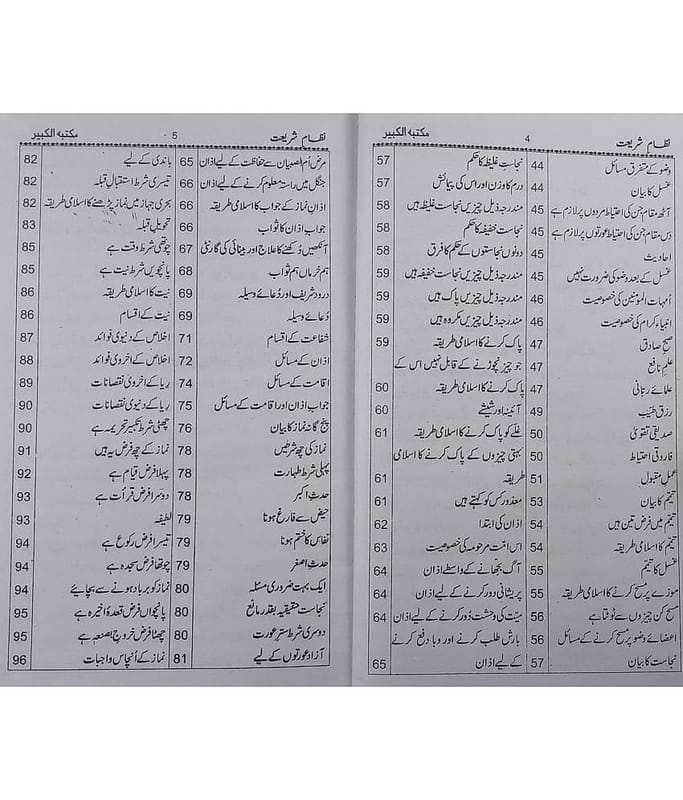 نظام شریعت 4 مکتبہ الکبیر
وضو کے متفرق مسائل 44
غسل کا بیان 44
آٹھ مقام جن کی احتیاط مردوں پر لازم ہے 45
دس مقام جن کی احتیاط عورتوں پر لازم ہے 45
احادیث 45
غسل کے بعد وضو کی ضرورت نہیں 45
اُمہات المؤمنین کی خصوصیت 46
انبیاء کرام کی خصوصیت 46
صبح صادق 47
علم نافع 47
علمائے ربانی 47
رزق طیّب 49
صدیقی تقویٰ 50
فاروقی احتیاط 50
عمل مقبول 51
تیمّم کا بیان 53
تیمّم میں فرض تین ہیں 54
تیمّم کا اسلامی طریقہ 54
غسل کا تیمّم 55
موزے پر مسح کرنے کا اسلامی طریقہ 55
مسح کن چیزوں سے ٹوٹتا ہے 56
اعضائے وضو پر مسح کرنے کے مسائل 56
نجاست کا بیان 57
نجاستِ غلیظہ کا حکم 57
درم کا وزن اور اس کی پیمائش 57
مندرجہ ذیل چیزیں نجاست غلیظہ ہیں 58
نجاست خفیفہ کا حکم 58
دونوں نجاستوں کے حکم کا فرق 58
مندرجہ ذیل چیزیں نجاست خفیفہ ہیں 59
مندرجہ ذیل چیزیں پاک ہیں 59
مندرجہ ذیل چیزیں مکروہ ہیں 59
پاک کرنے کا اسلامی طریقہ 59
جو چیز نچوڑنے کے قابل نہیں اس کے
پاک کرنے کا اسلامی طریقہ 60
آئینہ اور شیشے 60
غلّے کو پاک کرنے کا اسلامی طریقہ 61
بہتی چیزوں کے پاک کرنے کا اسلامی
طریقہ 61
معذور کس کو کہتے ہیں 61
اذان کی ابتدا 62
اس امّت مرحومہ کی خصوصیت 63
آگ بجھانے کے واسطے اذان 64
پریشانی دور کرنے کے لیے اذان 64
میّت کی وحشت دُور کرنے کے لیے اذان 64
بارش طلب کرنے اور وبا دفع کرنے
کے لیے اذان 65
نظام شریعت 5 مکتبہ الکبیر
مرض اُم الصبیان سے حفاظت کے لیے اذان 65
جنگل میں راستہ معلوم کرنے کے لیے اذان 66
اذان نماز کے جواب کا اسلامی طریقہ 66
جواب اذان کا ثواب 66
آنکھیں دُکھنے کا علاج اور بینائی کی گارنٹی 67
ہم خرما ں ہم ثواب 68
درود شریف اور دُعائے وسیلہ 69
دُعائے وسیلہ 69
شفاعت کے اقسام 71
اذان کے مسائل 72
اقامت کے مسائل 74
جواب اذان اور اقامت کے مسائل 75
پنج گانہ نماز کا بیان 76
نماز کی چھ شرطیں 78
پہلی شرط طہارت 78
حدثِ اکبر 78
حیض سے فارغ ہونا 79
نفاس کا ختم ہونا 79
حدث اصغر 79
ایک بہت ضروری مسئلہ 80
نجاست حقیقیہ بقدر مانع 80
دوسری شرط ستر عورت 80
آزاد عورتوں کے لیے 81
باندی کے لیے 82
تیسری شرط استقبال قبلہ 82
بحری جہاز میں نماز پڑھنے کا اسلامی طریقہ 82
تحویل قبلہ 83
چوتھی شرط وقت ہے 85
پانچویں شرط نیت ہے 85
نیت کا اسلامی طریقہ 86
نیت کے اقسام 86
اخلاص کے دنیوی فوائد 87
اخلاص کے اخروی فوائد 88
ریا کے اخروی نقصانات 89
ریا کے دنیوی نقصانات 90
چھٹی شرط تکبیر تحریمہ ہے 90
نماز کے چھ فرض یہ ہیں 91
پہلا فرض قیام ہے 92
دوسرا فرض قرأت ہے 93
لطیفہ 93
تیسرا فرض رکوع ہے 94
چوتھا فرض سجدہ ہے 94
نماز کو برباد ہونے سے بچائیے 94
پانچواں فرض قعدۂ اخیرہ ہے 95
چھٹا فرض خروج بصنعہ ہے 95
نماز کے اُنچاس واجبات 96